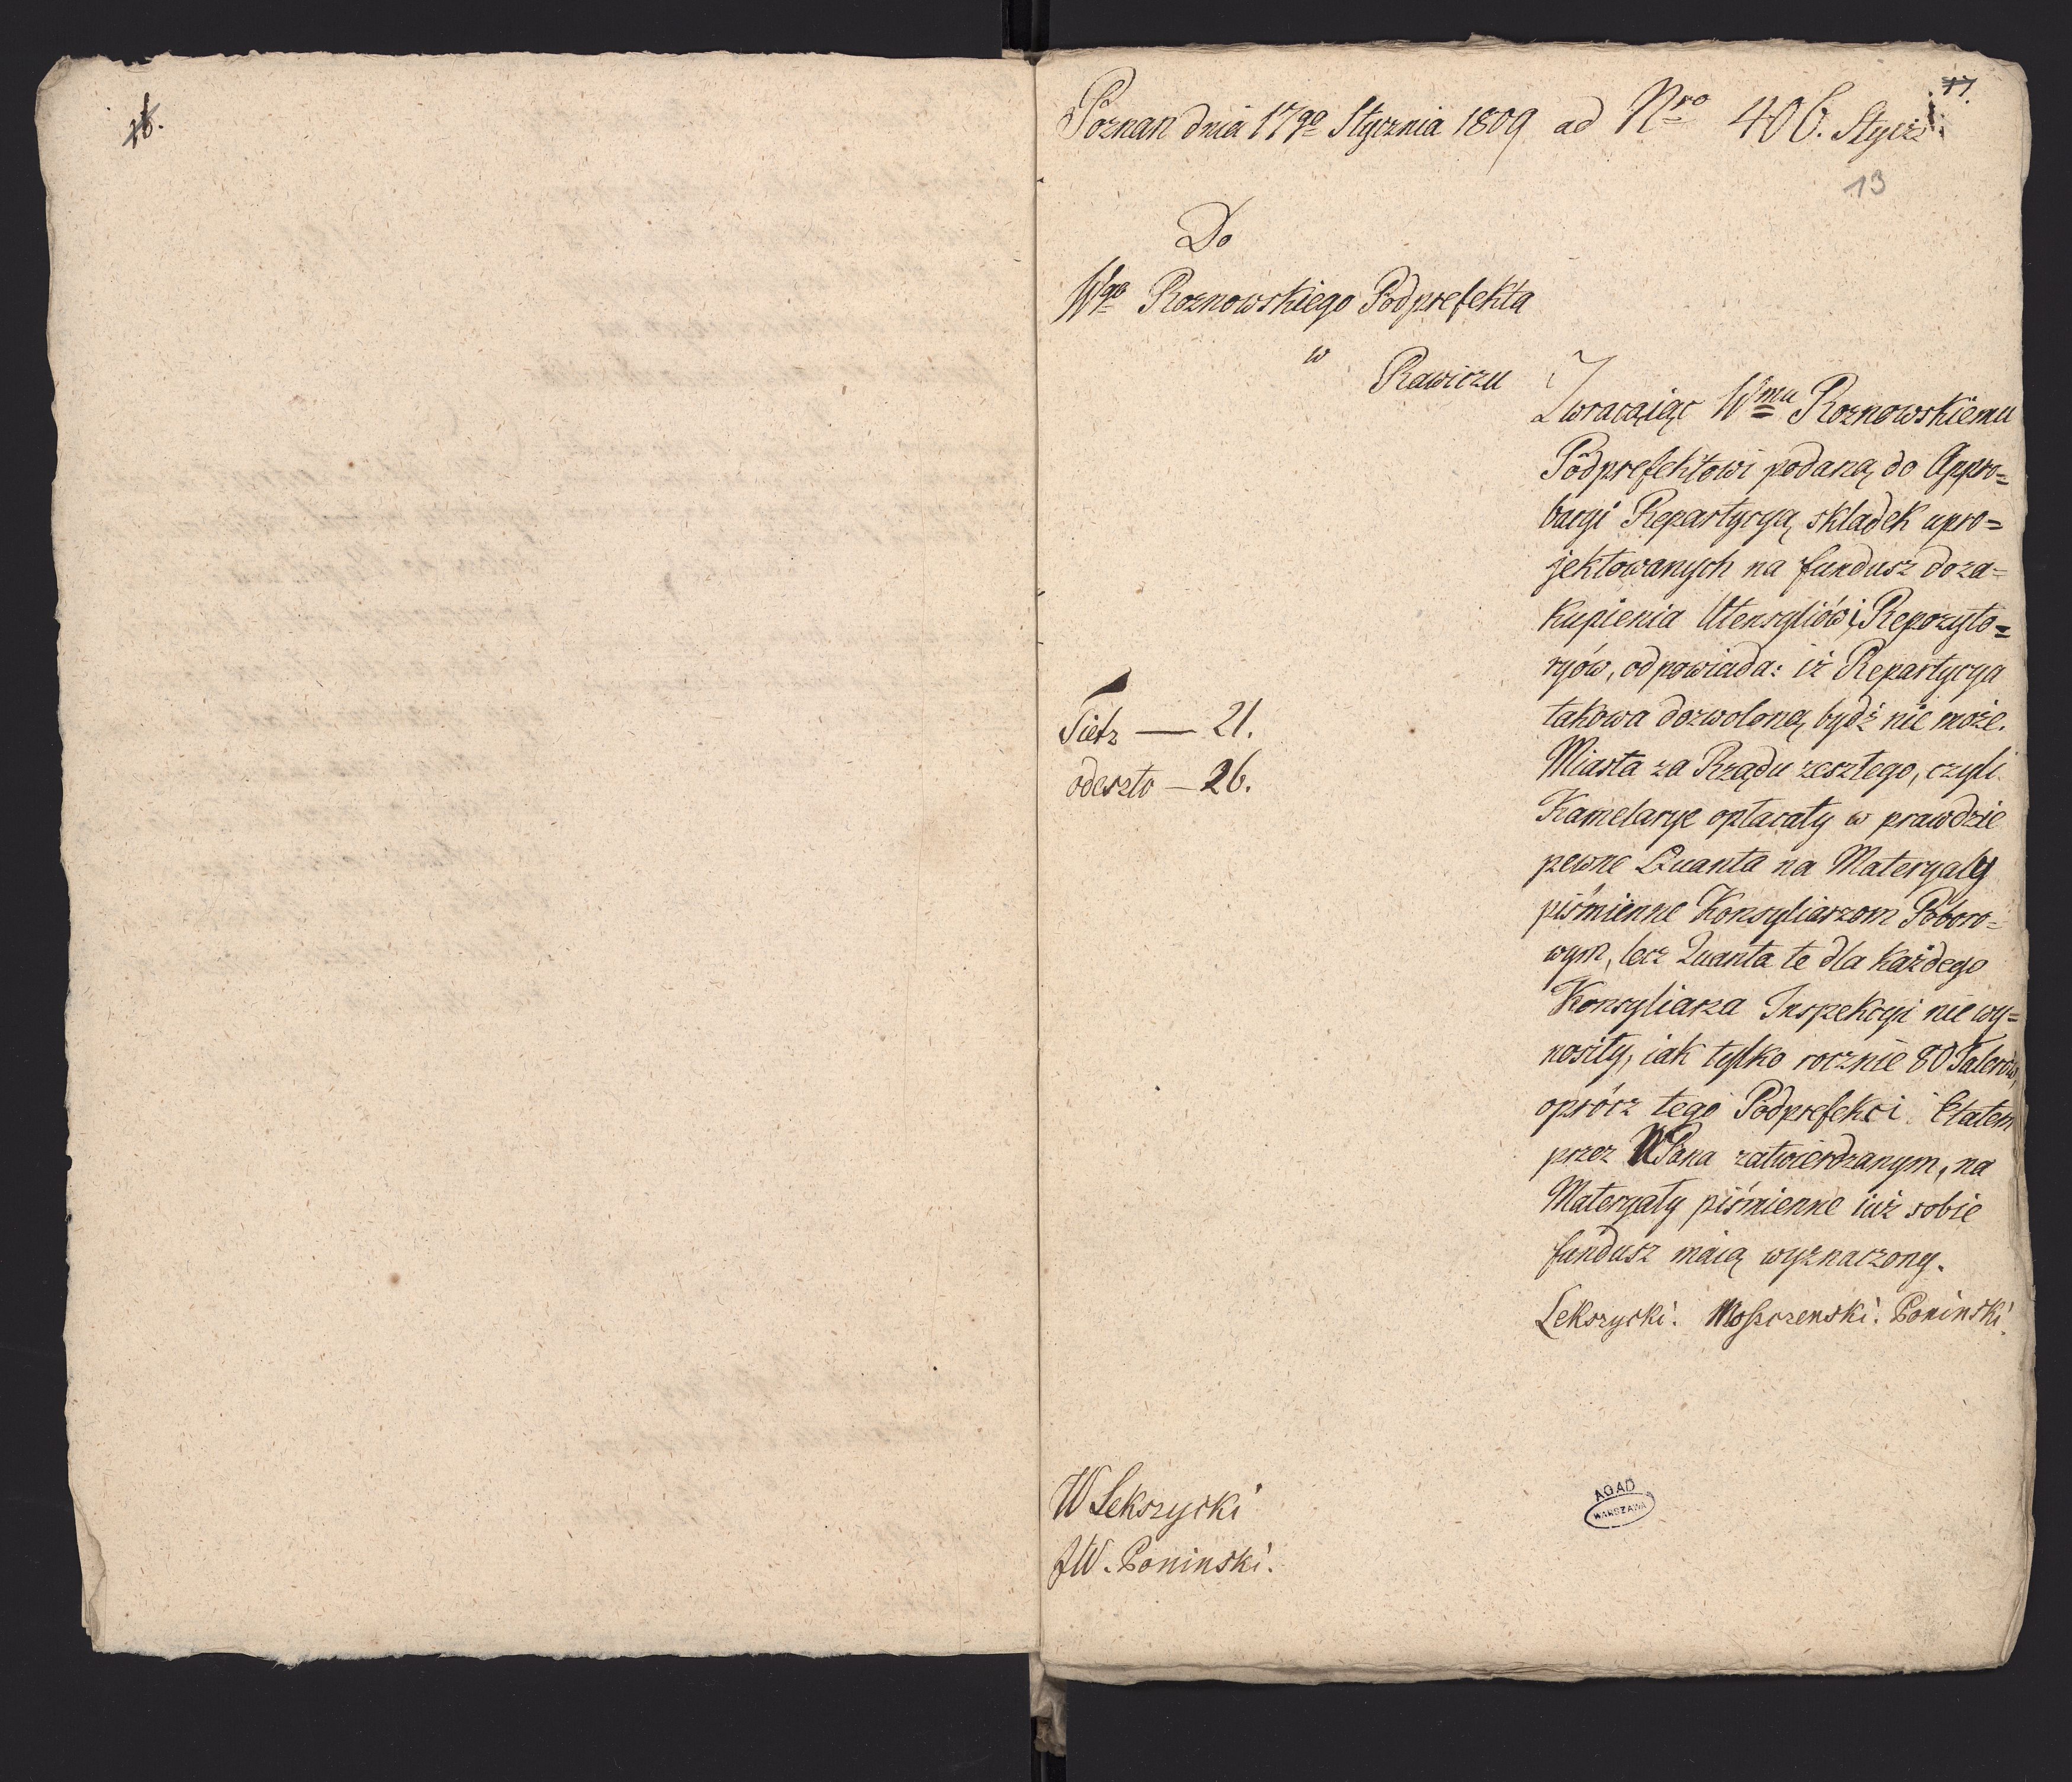 16.
17.
Poznan dnia 17go Stycznia 1809 ad Nro 406. Stycz:
13
Do
Wgo Roznowskiego Podprefekta
w Rawiczu
Zwracaiąc Wmu Roznowskiemu
Podprefektowi podaną do Appro=
bacyi Repartycyą skladek upro=
jektowanych na fundusz do za=
kupienia Utensyliów i Repozyto=
ryów, odpowiada: iż Repartycya
takowa dozwoloną bydź nie może.
Miasta za Rządu zeszłego, czyli
Kamelarye opłacały w prawdzie
pewne Quanta na Materyały
piśmienne Konsyliarzom Poboro=
wym, lecz Quanta te dla każdego
Konsyliarza Inspekcyi nie wy=
nosiły, iak tylko rocznie 80 Talerów,
oprócz tego Podprefekci Etatem
przez WPana zatwierdzanym, na
Materyały piśmienne iuż sobie
fundusz maią wyznaczony.
Lekszycki. Moszczenski. Poninski.
Tietz — 21.
odeszło — 26.
W Lekszycki
JW. Poninski.
AGAD
WARSZAWA